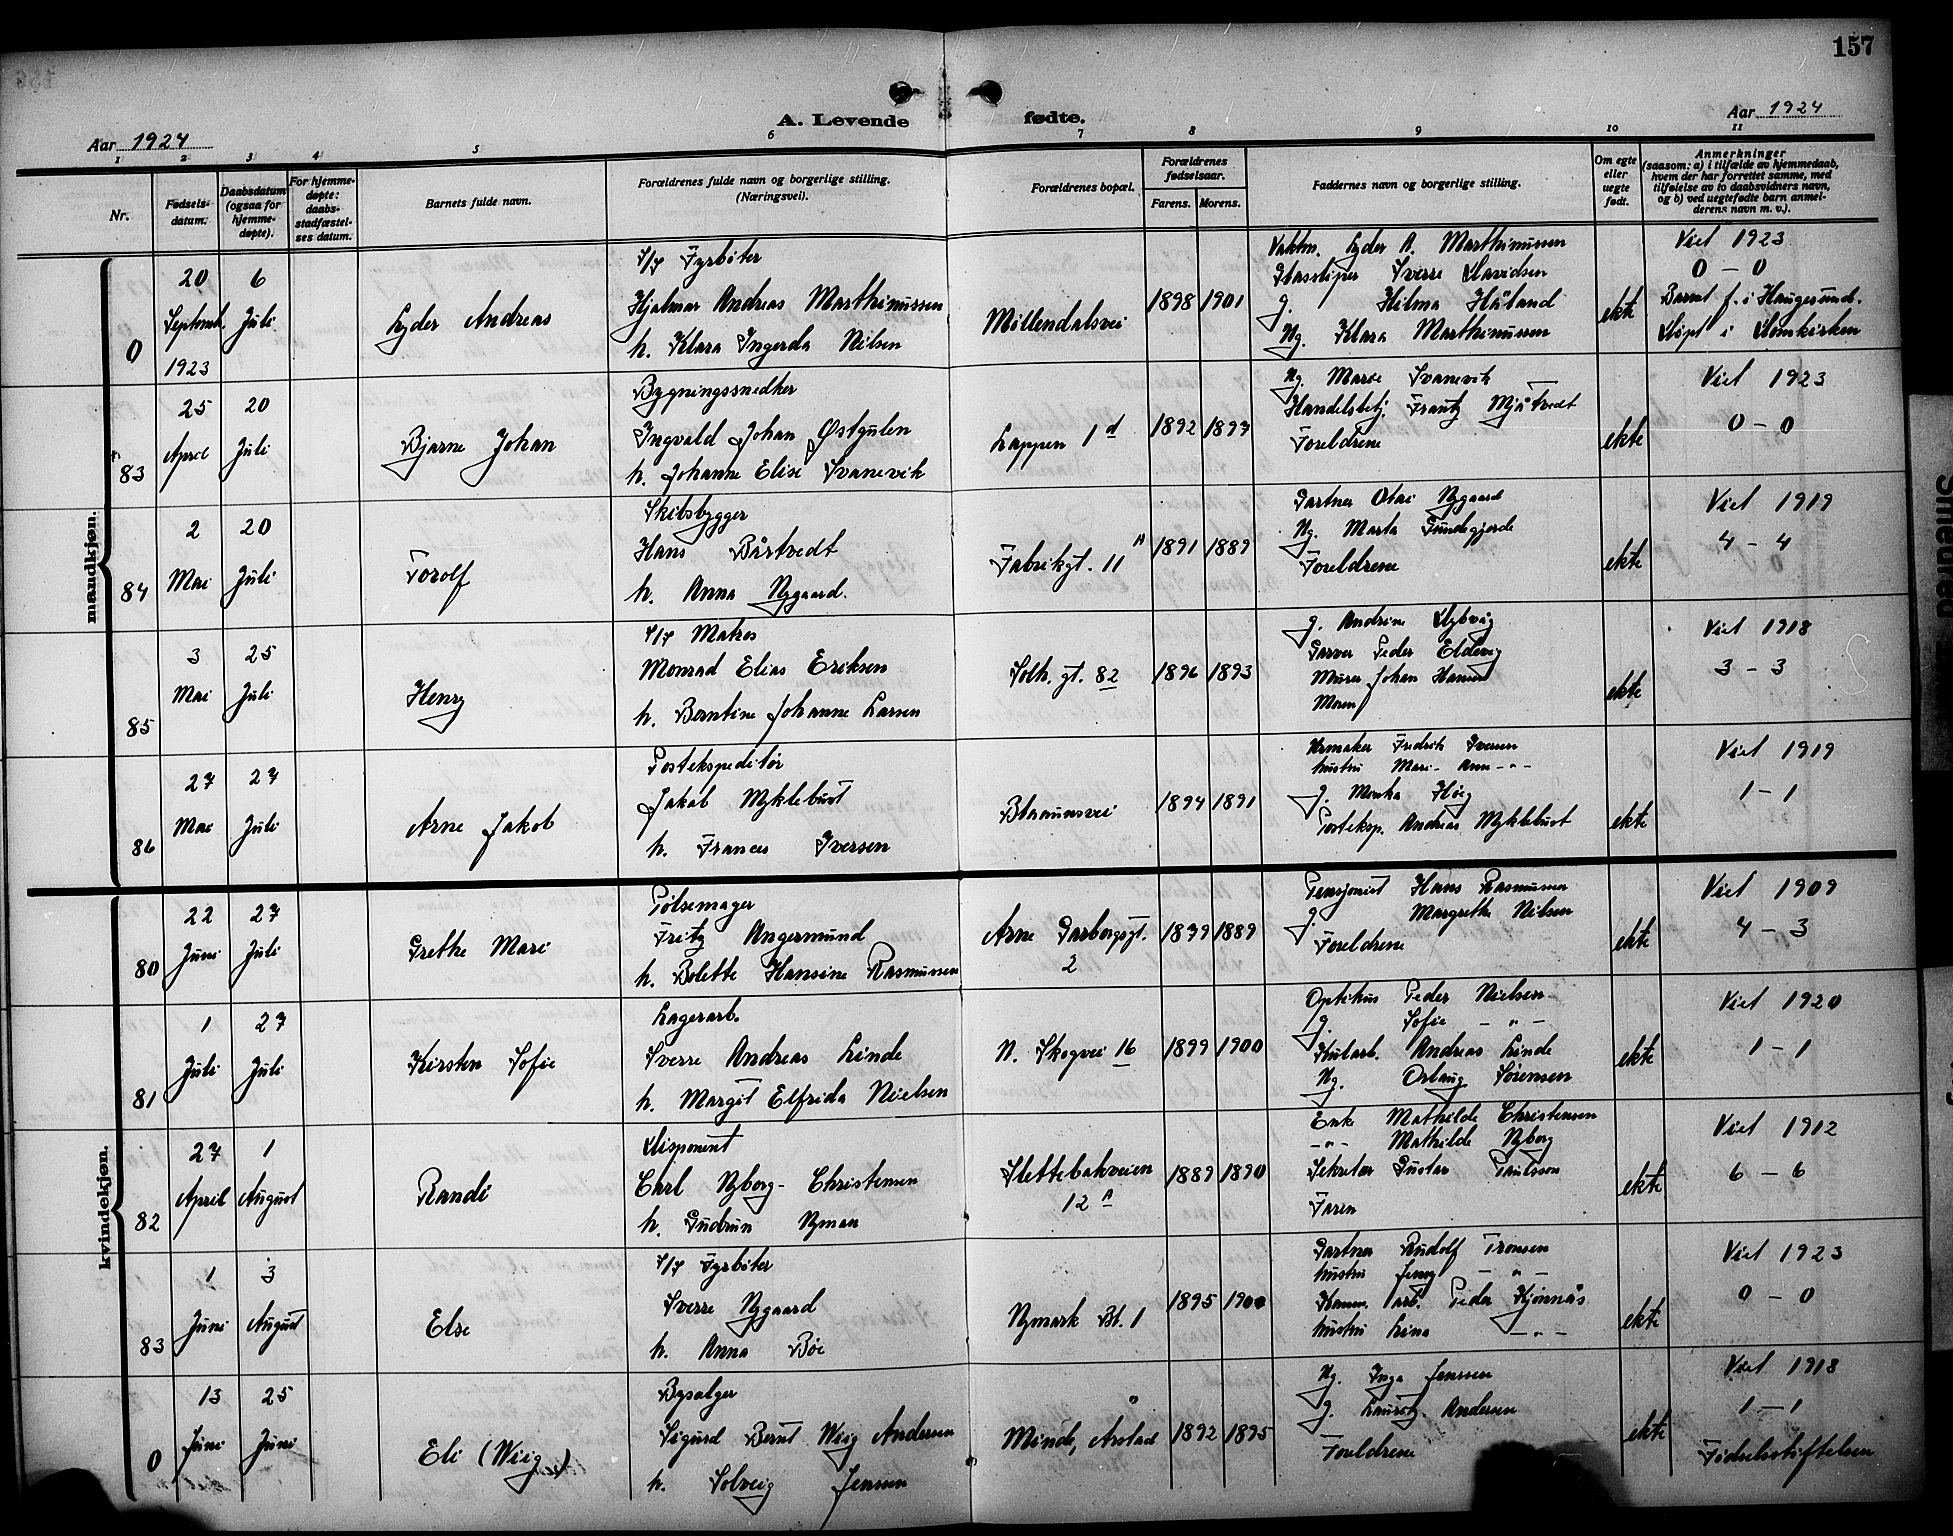 157
A. Levende fødte.
Aar 1924
Aar 1924
1 2 3 4 5 6 7 8 9 10 11
Nr.
Fødsels-
datum.
Daabsdatum
(ogsaa for
hjemme-
døpte).
For hjemme-
døpte:
daabs-
stadfæstel-
ses datum.
Barnets fulde navn.
Forældrenes fulde navn og borgerlige stilling.
(Næringsvei).
Forældrenes bopæl.
Forældrenes
fødselsaar.
Farens. Morens.
Faddernes navn og borgerlige stilling.
Om egte
eller
uegte
født.
Anmerkninger
(saasom: a) i tilfælde av hjemmedaab,
hvem der har forrettet samme, med
tilføielse av to daabsvidners navn,
og b) ved uegtefødte barn anmel-
derens navn m. v.).
mandkjøn.
0
20
Septemb.
1923
6
Juli
Lyder Andreas
S/s Fyrbøter
Hjalmar Andreas Marthinussen
h. Klara Ingerda Nilsen
Møllendalsvei
1898 1901
Vaktm. Lyder A. Marthinussen
Glassliper Sverre Davidsen
g. Helma Håland
Ug. Klara Marthinussen
ekte
Viet 1923
0 – 0
Barnet f. i Haugesund.
Døpt i Domkirken
83
25
April
20
Juli
Bjarne Johan
Bygningssnedker
Ingvald Johan Østgulen
h. Johanne Elise Svanevik
Lappen 1 d
1892 1897
Ug. Marie Svanevik
Handelsbetj. Frantz Mjåtvedt
Foreldrene
ekte
Viet 1923
0 – 0
84
2
Mai
20
Juli
Torolf
Skibsbygger
Hans Bårtvedt
h. Anna Nygaard.
Fabrikgt. 11 A
1891 1889
Gartner Olai Nygaard
Ug. Marta Sundegjerde
Foreldrene
ekte
Viet 1919
4 – 4
85
3
Mai
25
Juli
Henry
S/s Matros
Monrad Elias Eriksen
h. Berntine Johanne Larsen
Solh. gt. 82
1896 1893
g. Andrine Dybvig
Garver Peder Eldevig
Murer Johan Hansen
Moren
ekte
Viet 1918
3 – 3
86
27
Mai
27
Juli
Arne Jakob
Postekspeditør
Jakob Myklebust
h. Frances Iversen
Blaauwsvei
1894 1891
Urmaker Fredrik Iversen
hustru Mari-Ann – " –
g. Monika Høeg
Posteksp. Andreas Myklebust
ekte
Viet 1919
1 – 1
kvindekjøn.
80
22
Juni
27
Juli
Grethe Marie
Pølsemager
Fritz Angermund
h. Bolette Hansine Rasmussen
Arne Garborgsgt.
2
1879 1889
Pensjonist Hans Rasmussen
g. Margrethe Nilsen
Foreldrene
ekte
Viet 1909
4 – 3
81
1
Juli
27
Juli
Kirsten Sofie
Lagerarb.
Sverre Andreas Linde
h. Margit Elfrida Nielsen
N. Skogvei 16
1899 1900
Optikus Peder Nielsen
g. Sofie – " –
Kularb. Andreas Linde
Ug. Orlaug Sørensen
ekte
Viet 1920
1 – 1
82
27
April
1
August
Randi
Disponent
Carl Nyborg-Christensen
h. Gudrun Nyman
Slettebakveien
12 A
1889 1890
Enke Mathilde Christensen
– " – Mathilde Nyborg
Sekretær Gustav Paulsson
Faren
ekte
Viet 1912
6 – 6
83
1
Juni
3
August
Else
S/s Fyrbøter
Sverre Nygaard
h. Anna Bøe
Nymark Bl. 1
1895 1900
Gartner Rudolf Tronsen
hustru Jenny – " –
Komm. arb. Peder Kjønnås
hustru Lina – " –
ekte
Viet 1923
0 – 0
0
13
Juni
25
Juni
Eli (Wiig)
Bysælger
Sigurd Bernt Wiig Andersen
h. Solveig Jensen
Minde, Årstad
1892 1895
Ug. Inga Jenssen
g. Lauritz Andersen
Foreldrene
ekte
Viet 1918
1 – 1
Fødselsstiftelsen